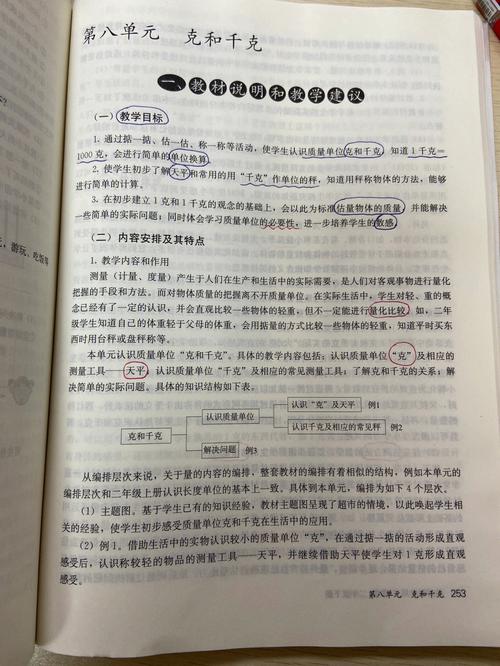 第八单元　克和千克
一、教材说明和教学建议
（一）教学目标
1. 通过掂一掂、估一估、称一称等活动，使学生认识质量单位克和千克，知道1千克＝
1000克，会进行简单的单位换算。
2. 使学生初步了解天平和常用的用“千克”作单位的秤，知道用秤称物体的方法，能够
进行简单的计算。
3. 在初步建立1克和1千克的观念的基础上，会以此为标准估量物体的质量，并能解决
一些简单的实际问题；同时体会学习质量单位的必要性，进一步培养学生的数感。
（二）内容安排及其特点
1. 教学内容和作用
测量（计量、度量）产生于人们在生产和生活中的实际需要，是人们对客观事物进行量化
把握的手段和方法。而对物体质量的把握离不开质量单位。在实际生活中，学生对轻、重的概
念已经有了一定的认识，并会直观比较一些物体的轻重，但不一定能进行量化比较。如，二年
级学生知道自己的体重轻于父母的体重，会用掂量的方式比较一些物体的轻重，知道平时买东
西时用台秤或盘秤称等。
本单元认识质量单位“克和千克”。具体的教学内容包括：认识质量单位“克”及相应的
测量工具——天平，认识质量单位“千克”及相应的常见测量工具；了解克和千克的关系；解
决简单的实际问题。具体的知识结构如下表。
认识“克”及天平　例1
认识质量单位
克和千克
认识千克及相应的常见秤　例2
解决问题　例3
从编排层次来说，关于量的内容的编排，整套教材的编排有着相似的结构，例如本单元的
编排层次和二年级上册认识长度单位的基本上一致。具体到本单元，编排为如下4个层次。
（1）主题图。基于学生已有的知识经验，教材主题图呈现了超市的情境，以此唤起学生相
关的经验，使学生初步感受质量单位克和千克在生活中的应用。
（2）例1。借助生活中的实物认识较小的质量单位“克”，在通过掂一掂的活动形成直观
感受后，认识称较轻的物品的测量工具——天平，并继续借助天平使学生对1克形成直观
感受。
第八单元　克和千克　253
，游玩、吃饭等